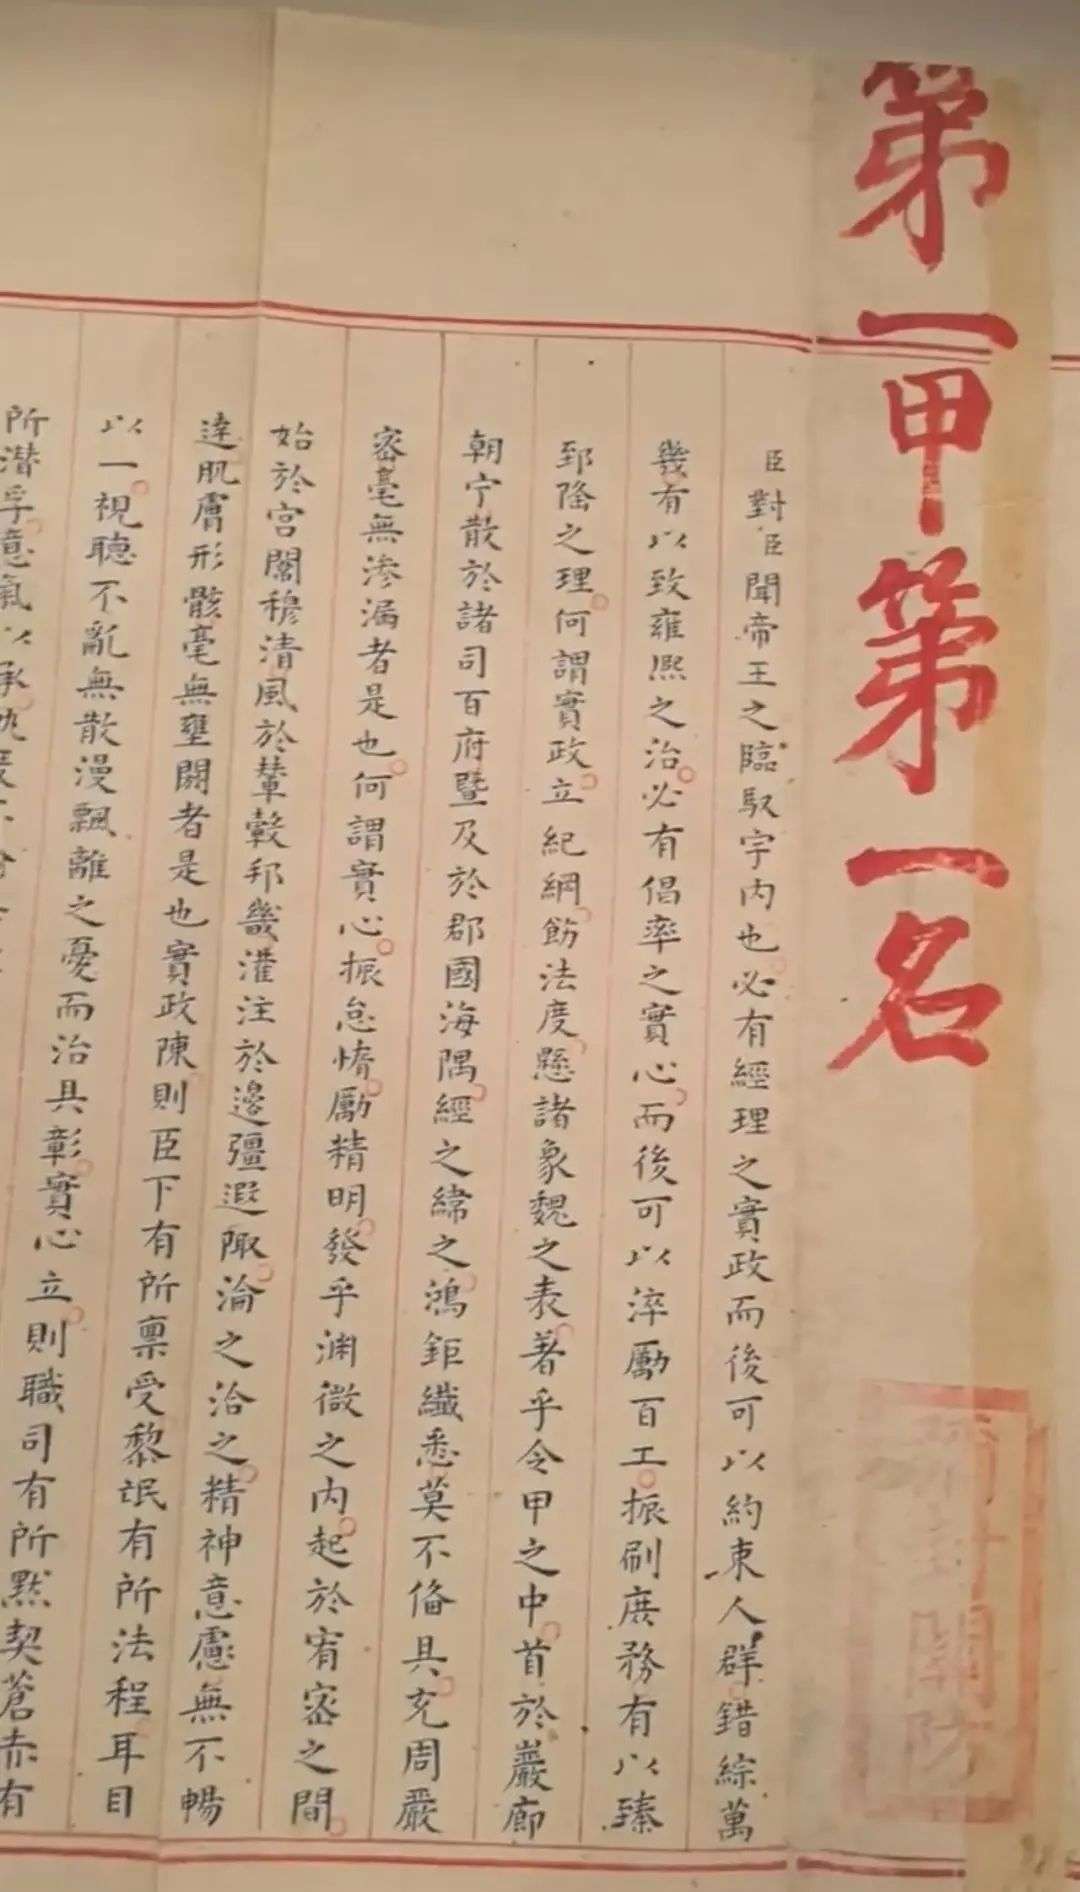 第一甲第一名
臣對臣聞帝王之臨馭宇内也必有經理之實政而後可以約束人群錯綜萬
幾有以致雍熙之治必有倡率之實心而後可以淬勵百工振刷庶務有以臻
郅隆之理何謂實政立紀綱飭法度懸諸象魏之表著乎令甲之中首於巖廊
朝宁散於諸司百府暨及於郡國海隅經之緯之鴻鉅纖悉莫不備具充周嚴
密毫無滲漏者是也何謂實心振怠惰勵精明發乎淵微之内起於宥密之間
始於宮闈穆清風於輦轂邦畿灌注於邊疆遐陬淪之洽之精神意慮無不暢
達肌膚形骸毫無壅閼者是也實政陳則臣下有所禀受黎氓有所法程耳目
以一視聽不亂無散漫飄離之憂而治具彰實心立則職司有所默契蒼赤有
所潛孚意氣以承
關防